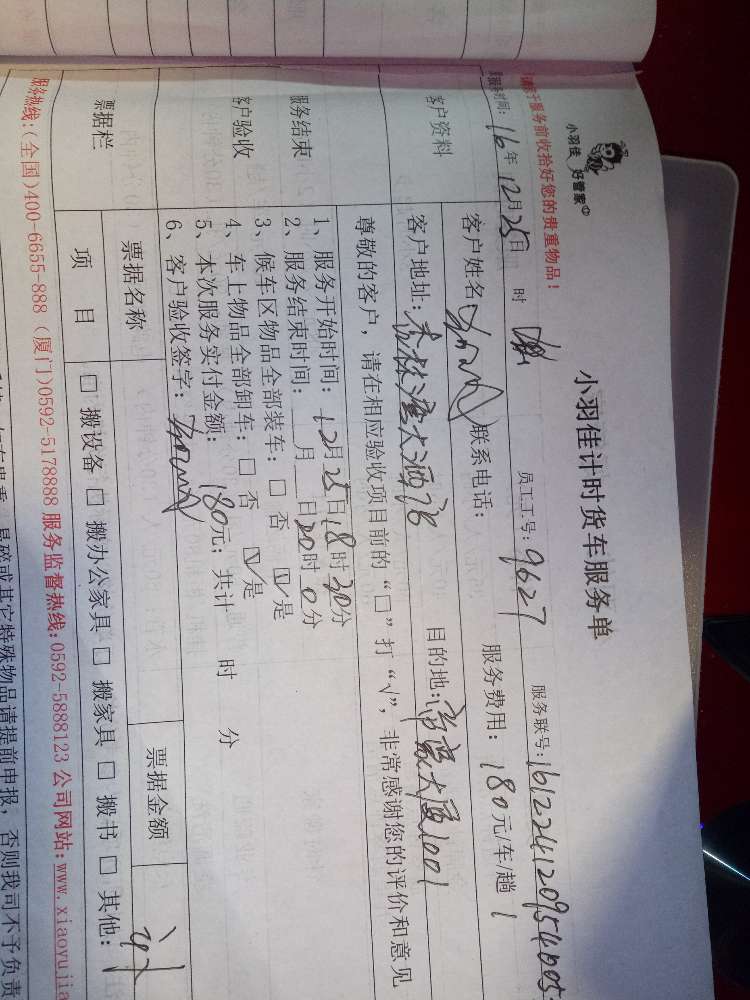 小羽佳 好管家
小羽佳计时货车服务单
于服务前收拾好您的贵重物品!
服务时间: 16年12月25日 时 员工工号: 9627 服务联号: 161224120954005
客户资料
客户姓名 联系电话: 服务费用: 180元/车/趟 1
客户地址: 大酒店 目的地: 大厦1001
尊敬的客户,请在相应验收项目前的“□”打“√”,非常感谢您的评价和意见
服务结束
客户验收
1、服务开始时间: 12月25日18时30分
2、服务结束时间: 月 日20时0分
3、候车区物品全部装车: □ 否 ☑ 是
4、车上物品全部卸车: □ 否 ☑ 是
5、本次服务实付金额: 180元; 共计 时 分
6、客户验收签字:
票据栏 票据名称 票据金额
项 目 □ 搬设备 □ 搬办公家具 □ 搬家具 □ 搬书 □ 其他:
服务热线:(全国)400-6655-888 (厦门)0592-5178888 服务监督热线:0592-5888123 公司网站:www.xiaoyujia
易碎或其它特殊物品请提前申报,否则我司不予负责